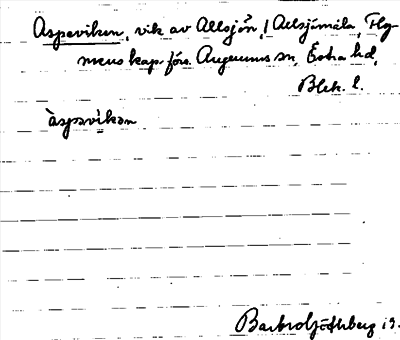 Aspeviken, vik av Allsjön, i Allsjömåla, Flyg-
mens kap. förs. Augerums sn, Östra hd,
Blek. l.
àspəvìkən
Barbro Göthberg 19.